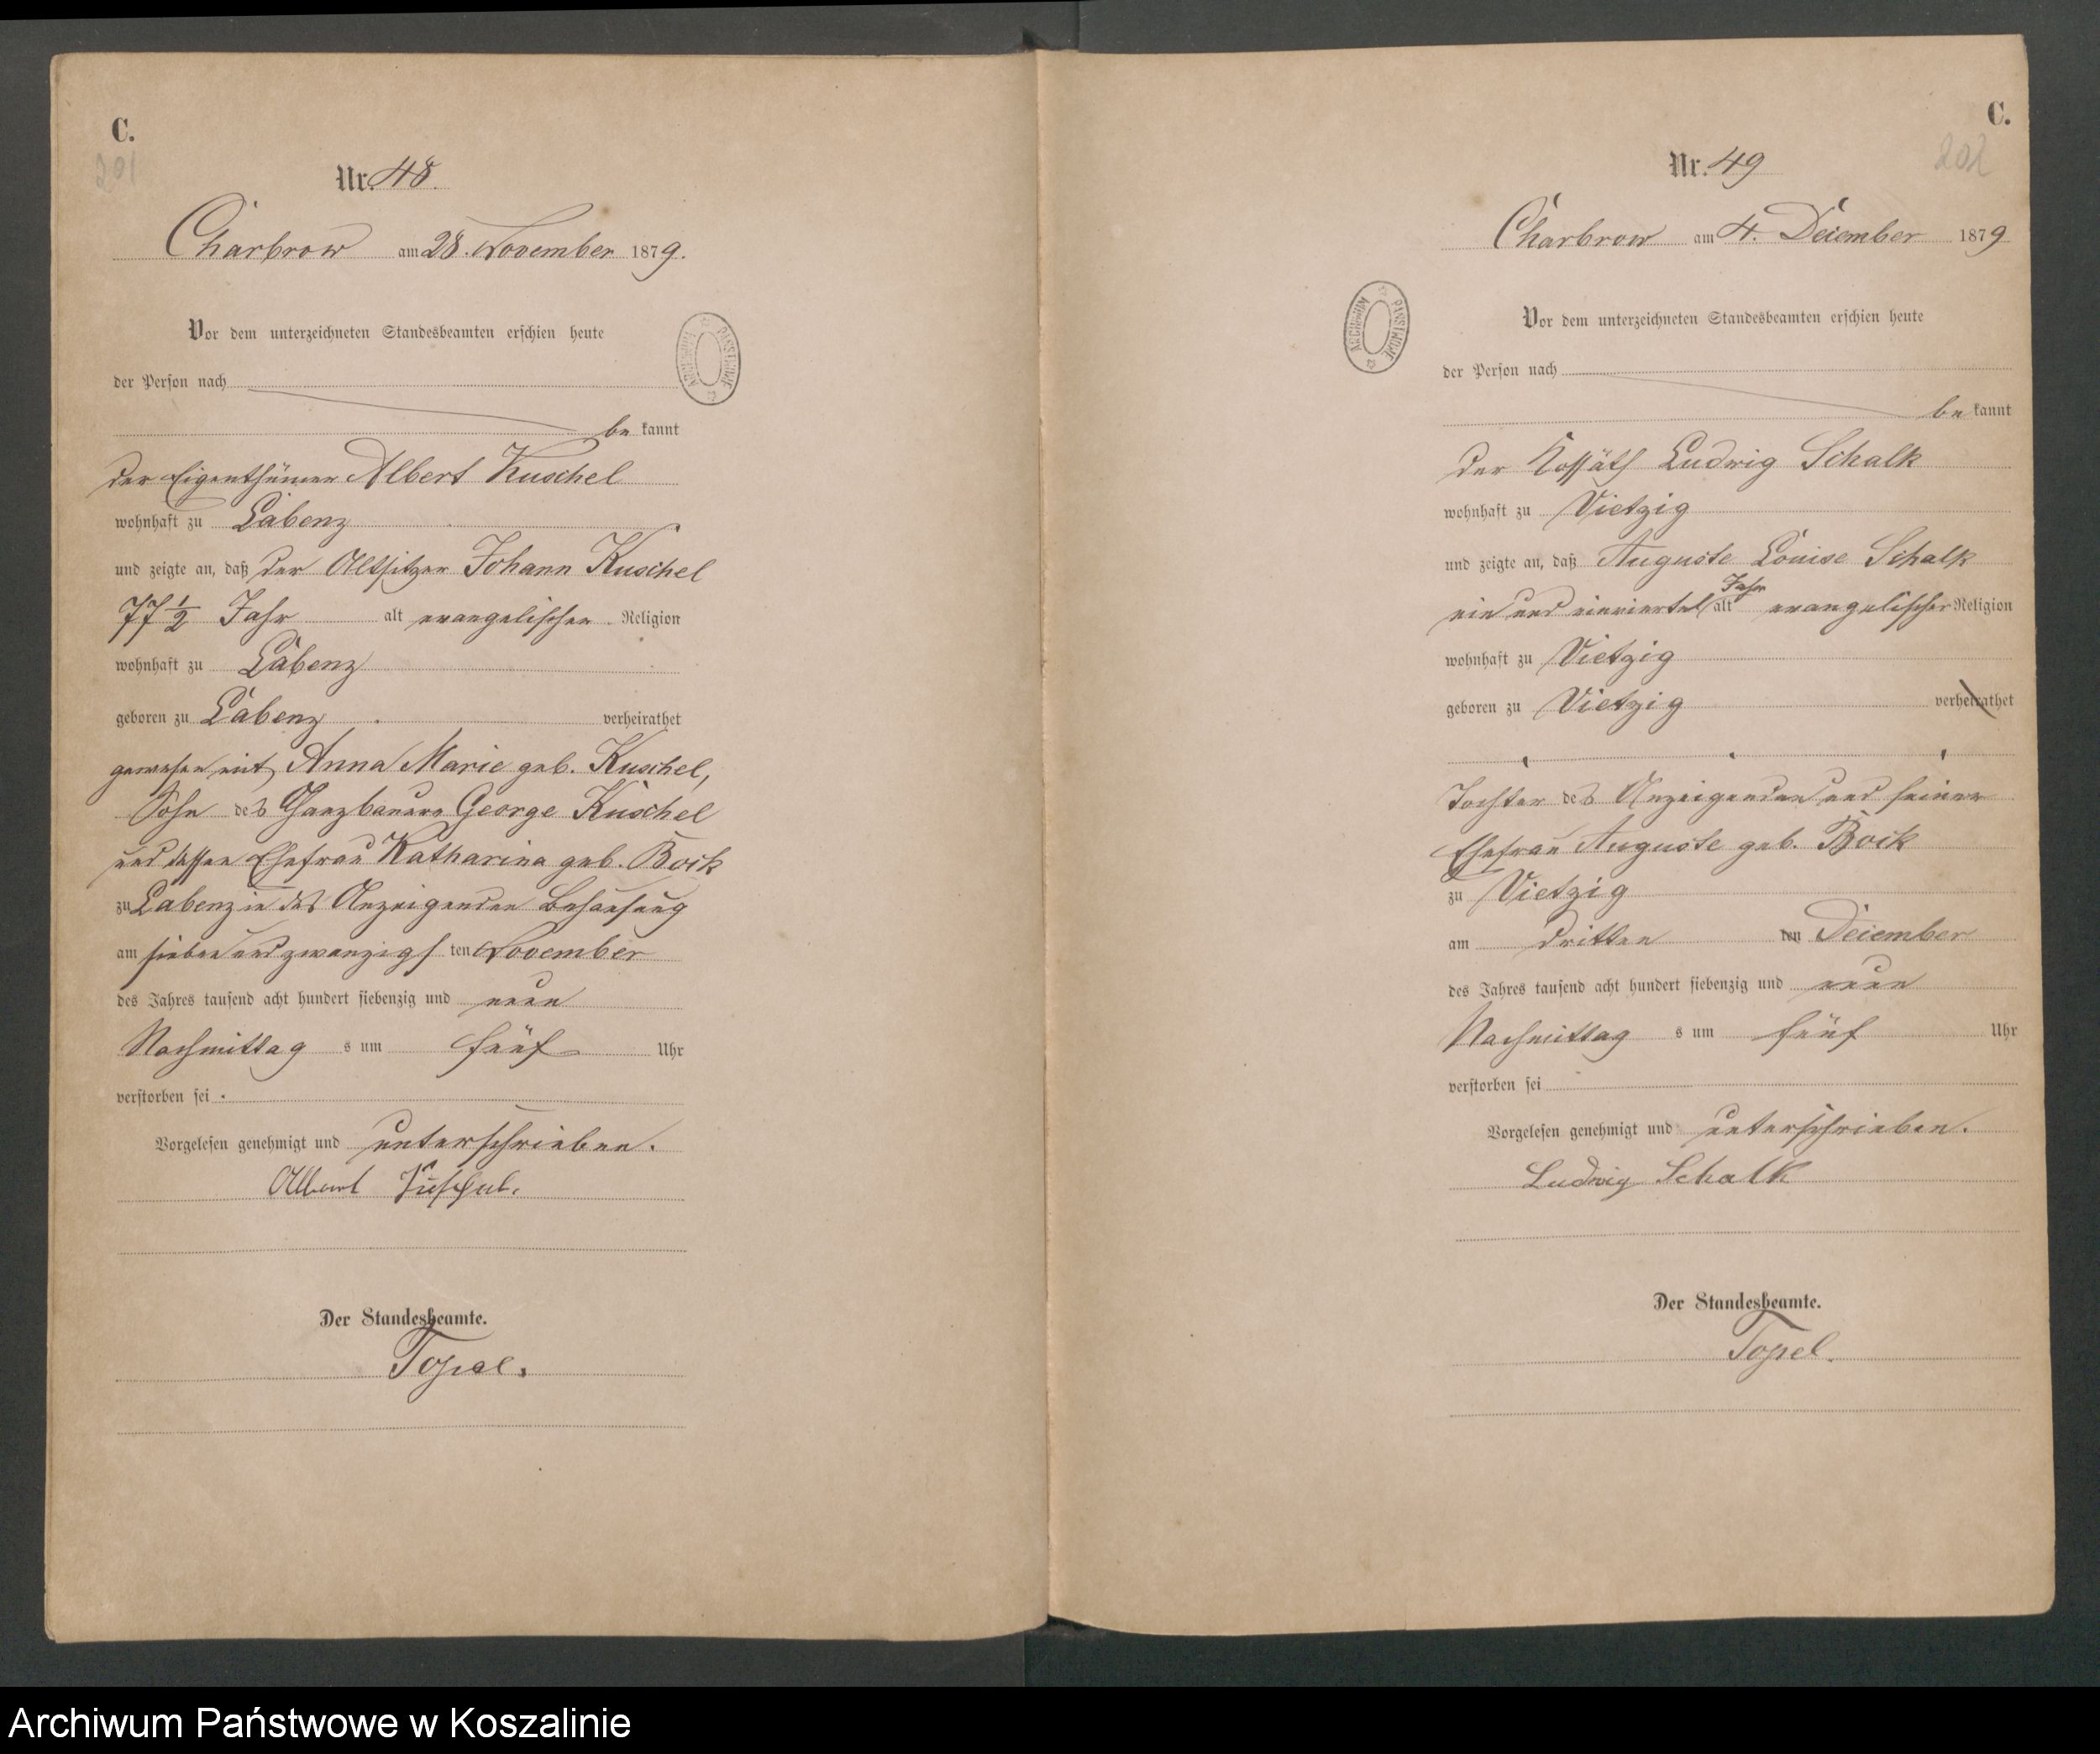 C.
201
Nr. 48.
Charbrow am 28. November 1879.
Vor dem unterzeichneten Standesbeamten erschien heute
der Person nach
bekannt
der Eigenthümer Albert Kuschel
wohnhaft zu Labenz
und zeigte an, daß der Altsitzer Johann Kuschel
77 1/2 Jahr alt evangelischer Religion
wohnhaft zu Labenz
geboren zu Labenz verheirathet
gewesen mit Anna Marie geb. Kuschel,
Sohn des Ganzbauern George Kuschel
und dessen Ehefrau Katharina geb. Bock
zu Labenz in des Anzeigenden Behausung
am sieben und zwanzigsten November
des Jahres tausend acht hundert siebenzig und neun
Nachmittags um fünf Uhr
verstorben sei.
Vorgelesen genehmigt und unterschrieben.
Albert Kuschel.
Der Standesbeamte.
Topel.
ARCHIWUM PAŃSTWOWE
C.
202
Nr. 49
Charbrow am 4. December 1879
Vor dem unterzeichneten Standesbeamten erschien heute
der Person nach
bekannt
der Kossäth Ludwig Schalk
wohnhaft zu Vietzig
und zeigte an, daß Auguste Louise Schalk
ein und einviertel Jahr alt evangelischer Religion
wohnhaft zu Vietzig
geboren zu Vietzig verheirathet
Tochter des Anzeigenden und seiner
Ehefrau Auguste geb. Bock
zu Vietzig
am dritten ten December
des Jahres tausend acht hundert siebenzig und neun
Nachmittags um fünf Uhr
verstorben sei
Vorgelesen genehmigt und unterschrieben.
Ludwig Schalk
Der Standesbeamte.
Topel.
ARCHIWUM PAŃSTWOWE
Archiwum Państwowe w Koszalinie